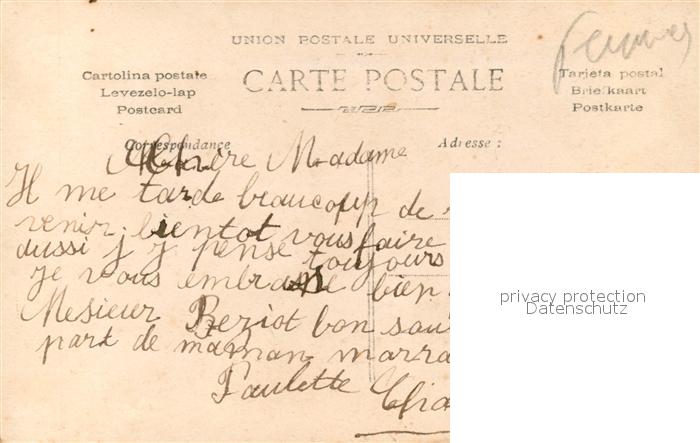 UNION POSTALE UNIVERSELLE
CARTE POSTALE
Cartolina postale
Levezelo-lap
Postcard
Tarjeta postal
Briefkaart
Postkarte
Femmes
Correspondance
Adresse :
Chère Madame
Il me tarde beaucoup de
venir bientot vous faire
aussi j y pense toujours
je vous embrasse bien
Mesieur Beziot bon sou
part de maman marra
Paulette
privacy protection
Datenschutz